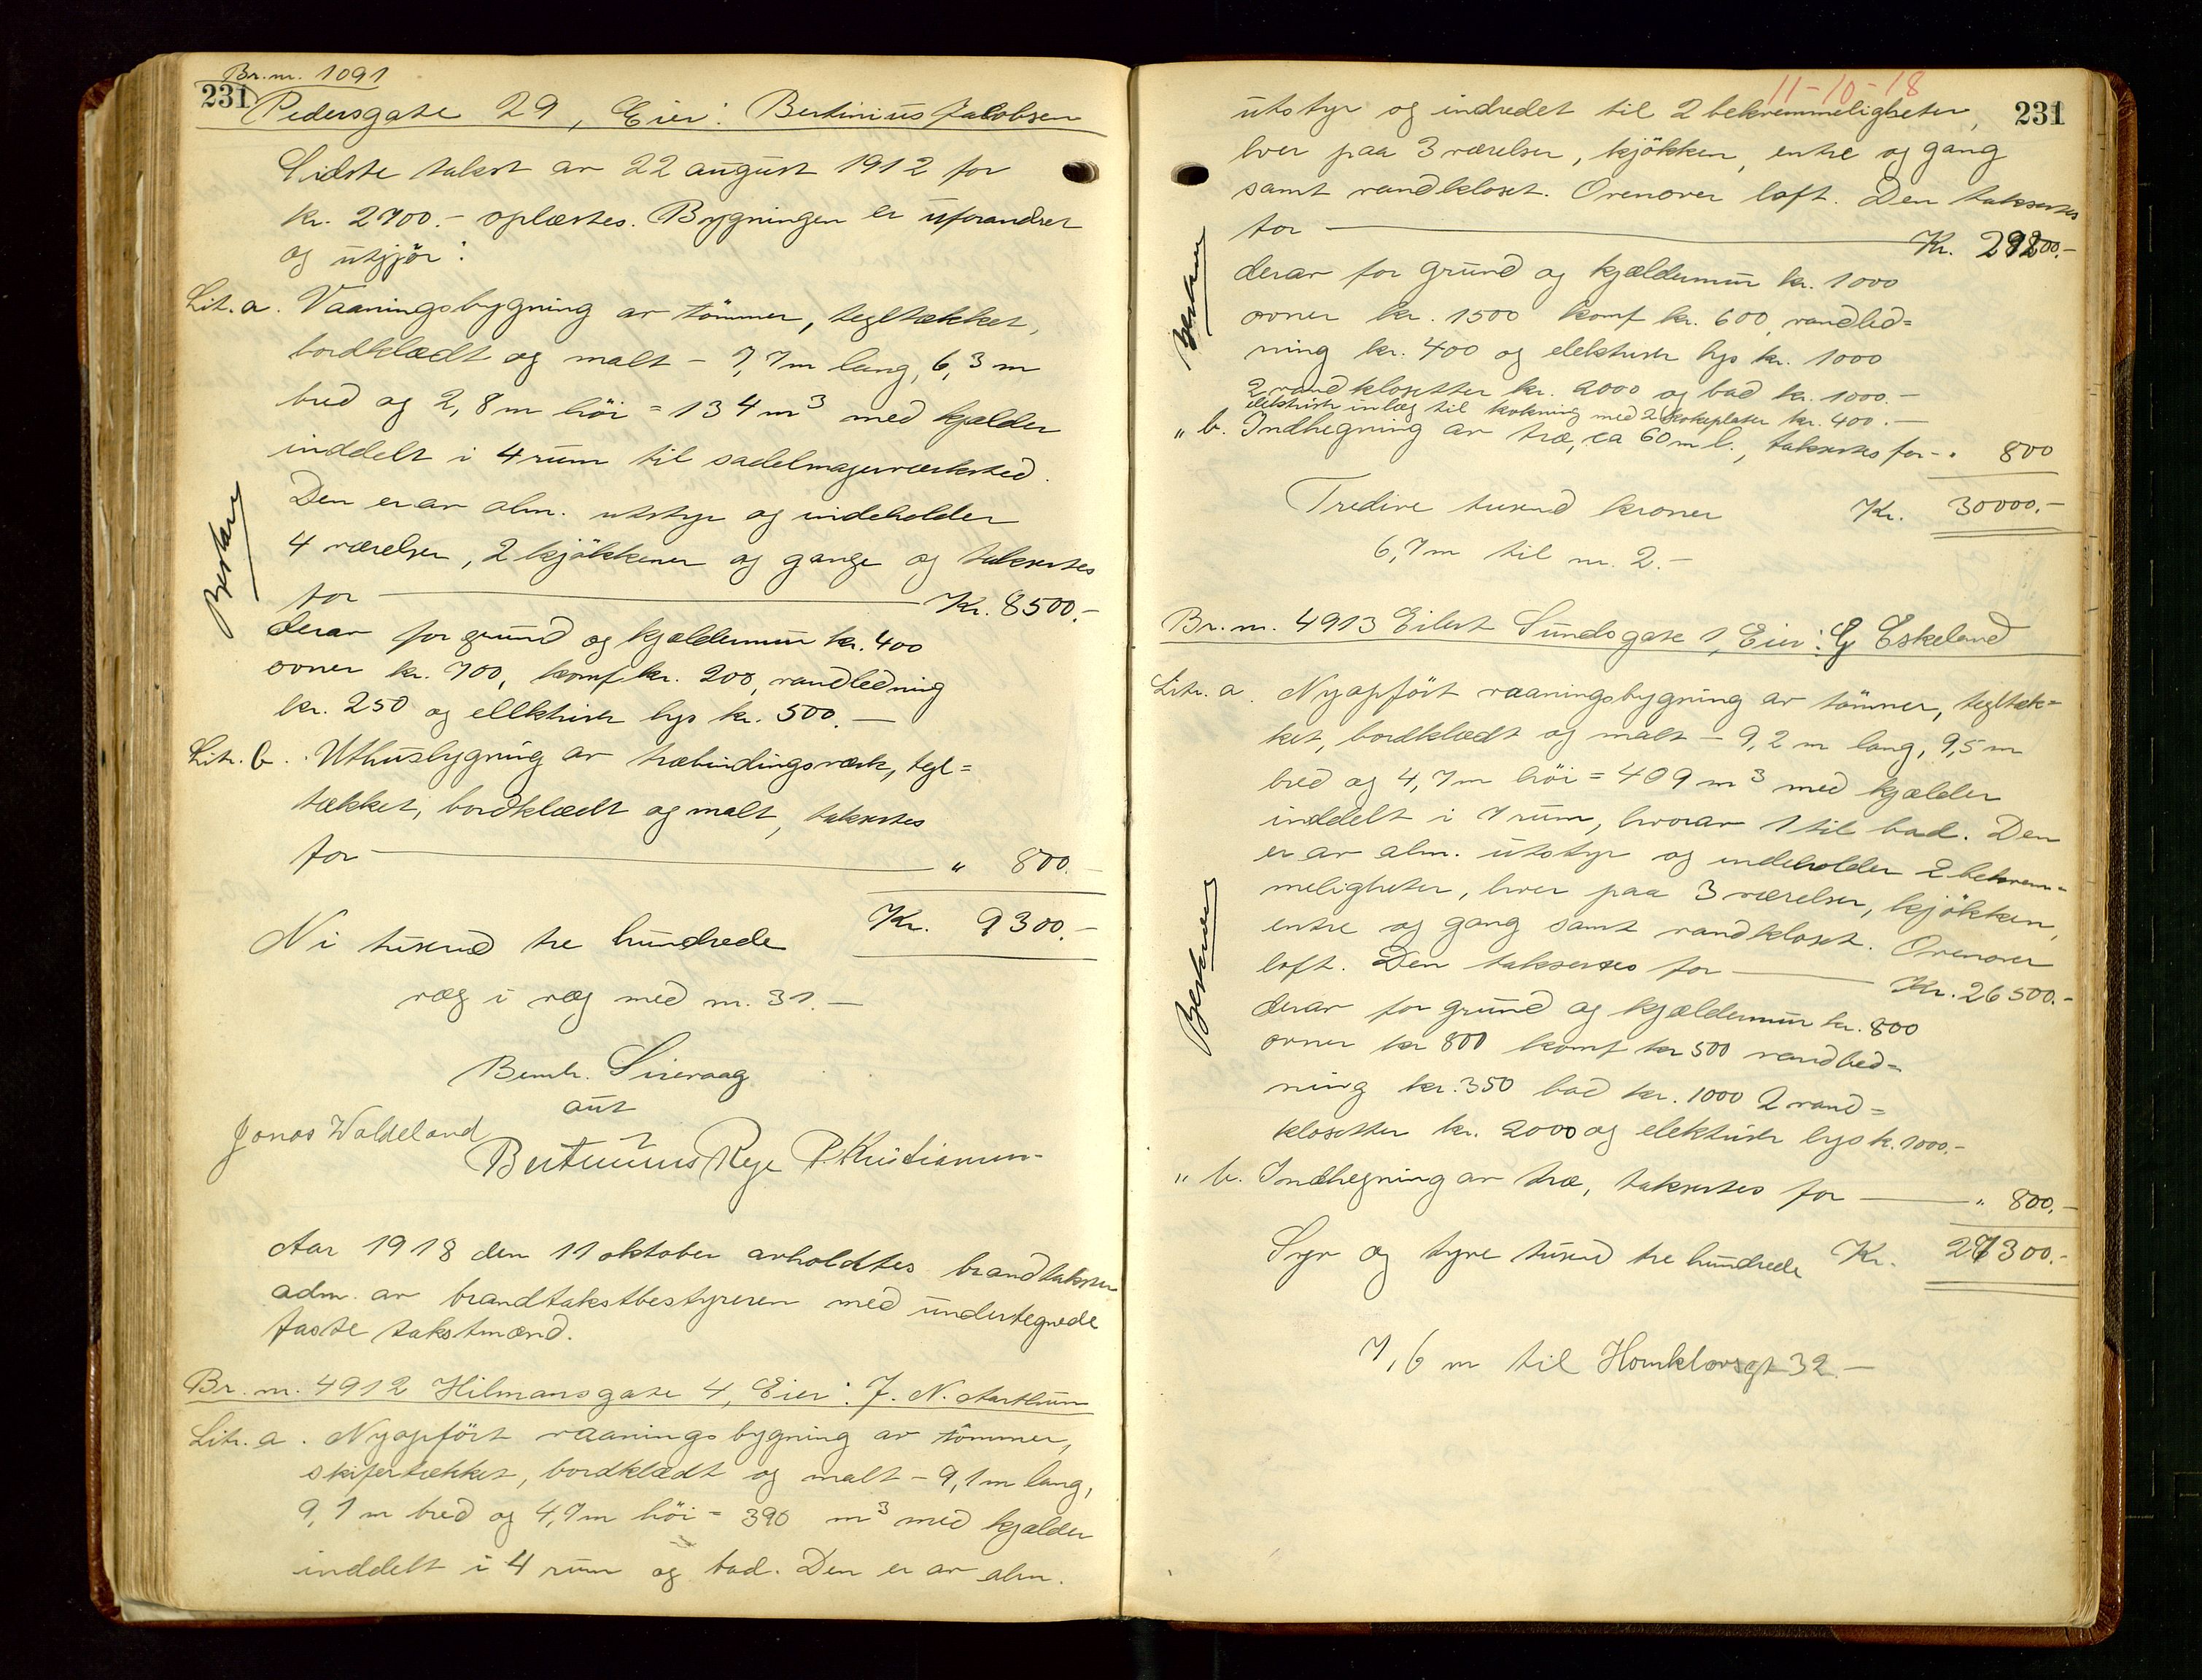 Br.nr. 1091
231
Pedersgate 29, Eier: Bertinius Jacobsen
Sidste takst av 22 august 1912 for
kr. 2700.- oplæstes. Bygningen er uforandret
og utgjör:
Lit. a. Vaaningsbygning av tömmer, tegltækket,
bordklædt og malt - 7,7 m lang, 6,3 m
bred og 2,8 m höi = 134 m³ med kjælder
inddelt i 4 rum til sadelmagerverksted.
Den er av alm. utstyr og indeholder
4 værelser, 2 kjökkener og gange og takseres
for Kr. 8500.-
derav for grund og kjældermur kr. 400
ovner kr. 700, komf kr. 200, vandledning
kr. 250 og ellektrisk lys kr. 500.-
Litr. b. Uthusbygning av træbindingsverk, tegl=
tækket, bordklædt og malt, takseres
for " 800.-
Ni tusend tre hundrede Kr. 9300.-
væg i væg med nr. 31.-
Bernh. Sirevaag
aut
Jonas Waldeland
Bertinius Rege P. Kristiansen
Aar 1918 den 11 oktober avholdtes brandtakster
adm. av brandtakstbestyreren med undertegnede
faste takstmænd.
Br.nr. 4912 Hilmansgate 4, Eier: J. N. Aarthun
Litr. a. Nyopfört vaaningsbygning av tömmer,
skifertækket, bordklædt og malt - 9,1 m lang,
9,1 m bred og 4,7 m höi = 390 m³ med kjælder
inddelt i 4 rum og bad. Den er av alm.
11-10-18
231
utstyr og indredet til 2 bekvemmeligheter,
hver paa 3 værelser, kjökken, entre og gang
samt vandkloset. Ovenover loft. Den takseres
for Kr. 29200.-
derav for grund og kjældermur kr. 1000
ovner kr. 1500 komf kr. 600, vandled=
ning kr. 400 og elektrisk lys kr. 1000
2 vandklosetter kr. 2000 og bad kr. 1000.-
elektrisk inlæg til kokning med 2 kokeplater kr. 400.-
" b. Indhegning av træ, ca 60 m l., takseres for - " 800
Tredive tusend kroner Kr. 30000.-
6,7 m til nr. 2.-
Br.nr. 4913 Eilert Sundsgate 1, Eier: G Eskeland
Litr. a. Nyopfört vaaningsbygning av tömmer, tegltæk=
ket, bordklædt og malt - 9,2 m lang, 9,5 m
bred og 4,7 m höi = 409 m³ med kjælder
inddelt i 7 rum, hvorav 1 til bad. Den
er av alm. utstyr og indeholder 2 bekvem=
meligheter, hver paa 3 værelser, kjökken,
entre og gang samt vandkloset. Ovenover
loft. Den takseres for Kr. 26500.-
derav for grund og kjældermur kr. 800
ovner kr 800 komf kr 500 vandled=
ning kr. 350 bad kr. 1000 2 vand=
klosetter kr. 2000 og elektrisk lys k. 1000.-
" b. Indhegning av træ, takseres for " 800.-
Syv og tyve tusend tre hundrede Kr. 27300.-
7,6 m til Homkloвsgt 32.-